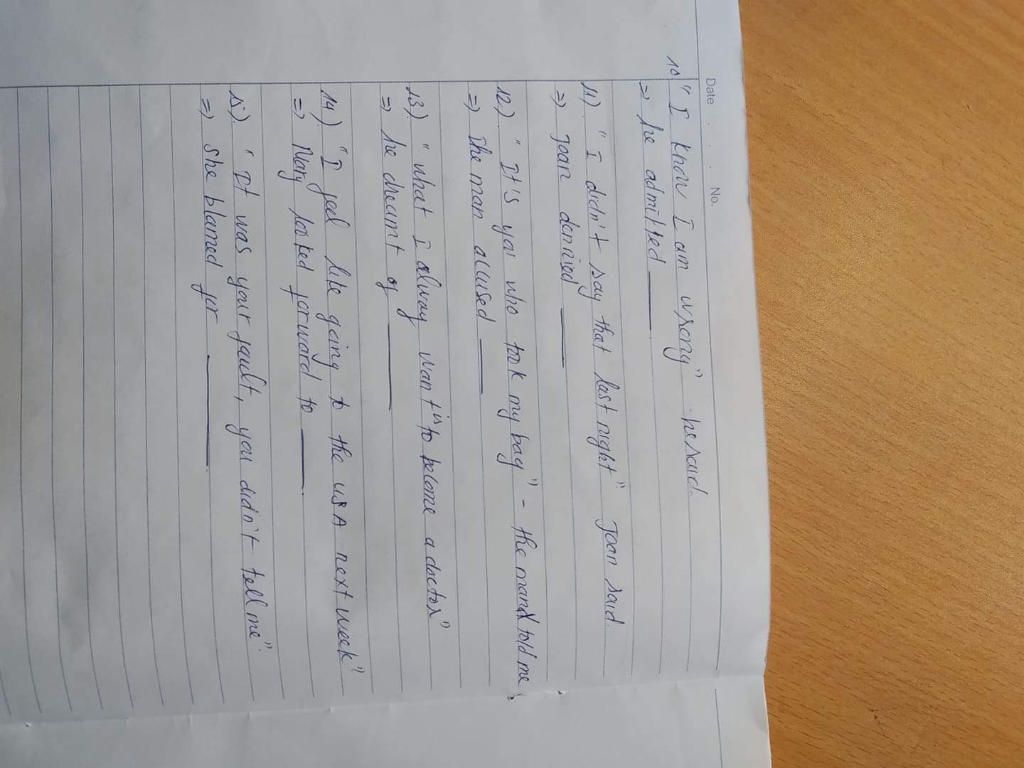 Date . . . No.
10 " I know I am wrong" - he said.
=> he admitted ____
11) " I didn't say that last night" Joan said
=> Joan denied ____
12) " It's you who took my bag" - the man told me
=> The man accused ____
13) "What I always want is to become a doctor"
=> he dreamt of ____
14) "I feel like going to the USA next week"
=> Mary looked forward to ____
15) " It was your fault, you didn't tell me".
=> She blamed for ____